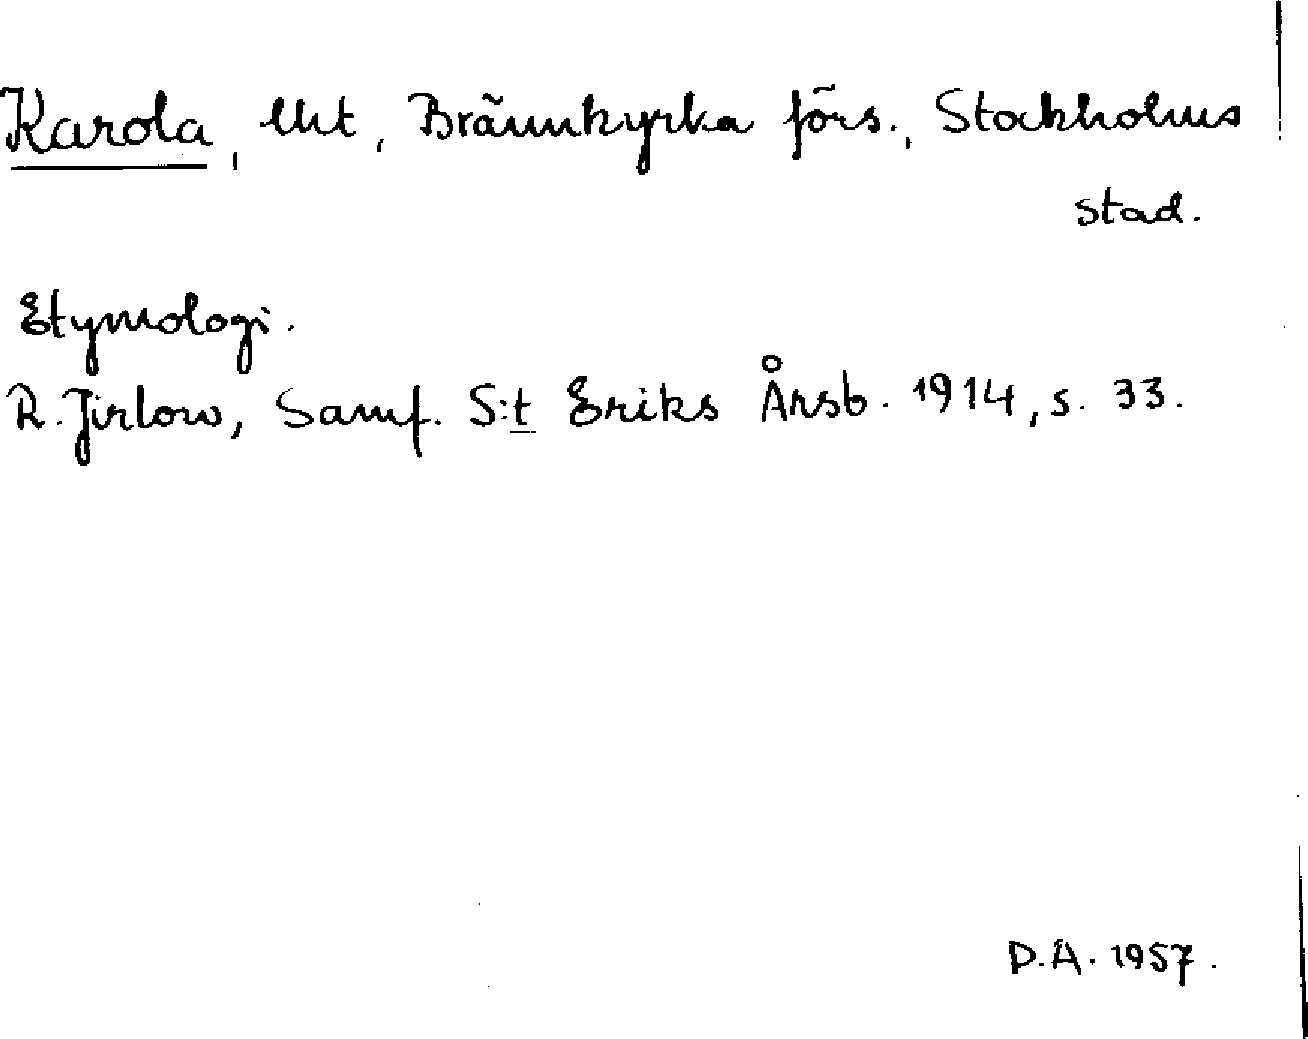 Karola, lht, Brännkyrka förs., Stockholms
stad.
Etymologi.
R. Jirlow, Samf. S:t Eriks Årsb. 1914, s. 33.
D.A. 1957.